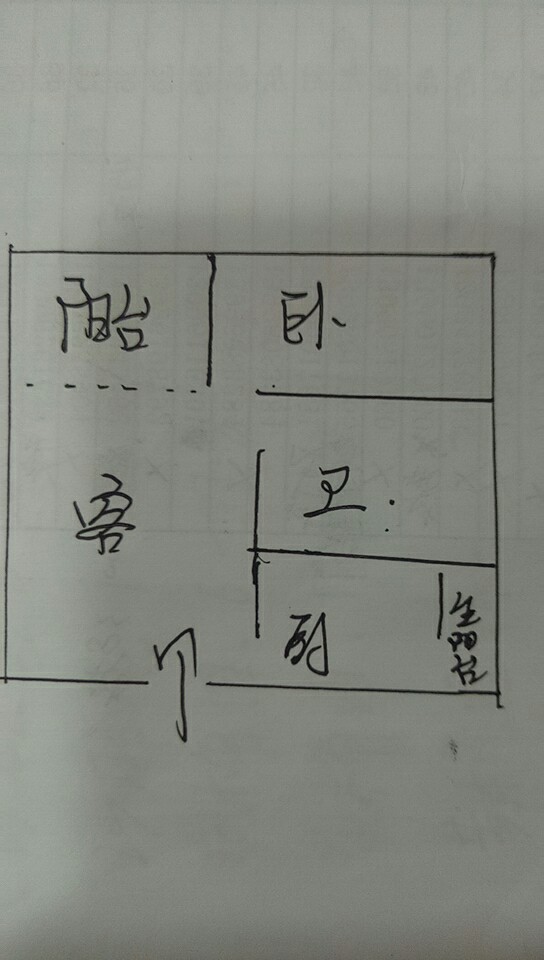 阳台
卧
卫
客
厨
生阳台